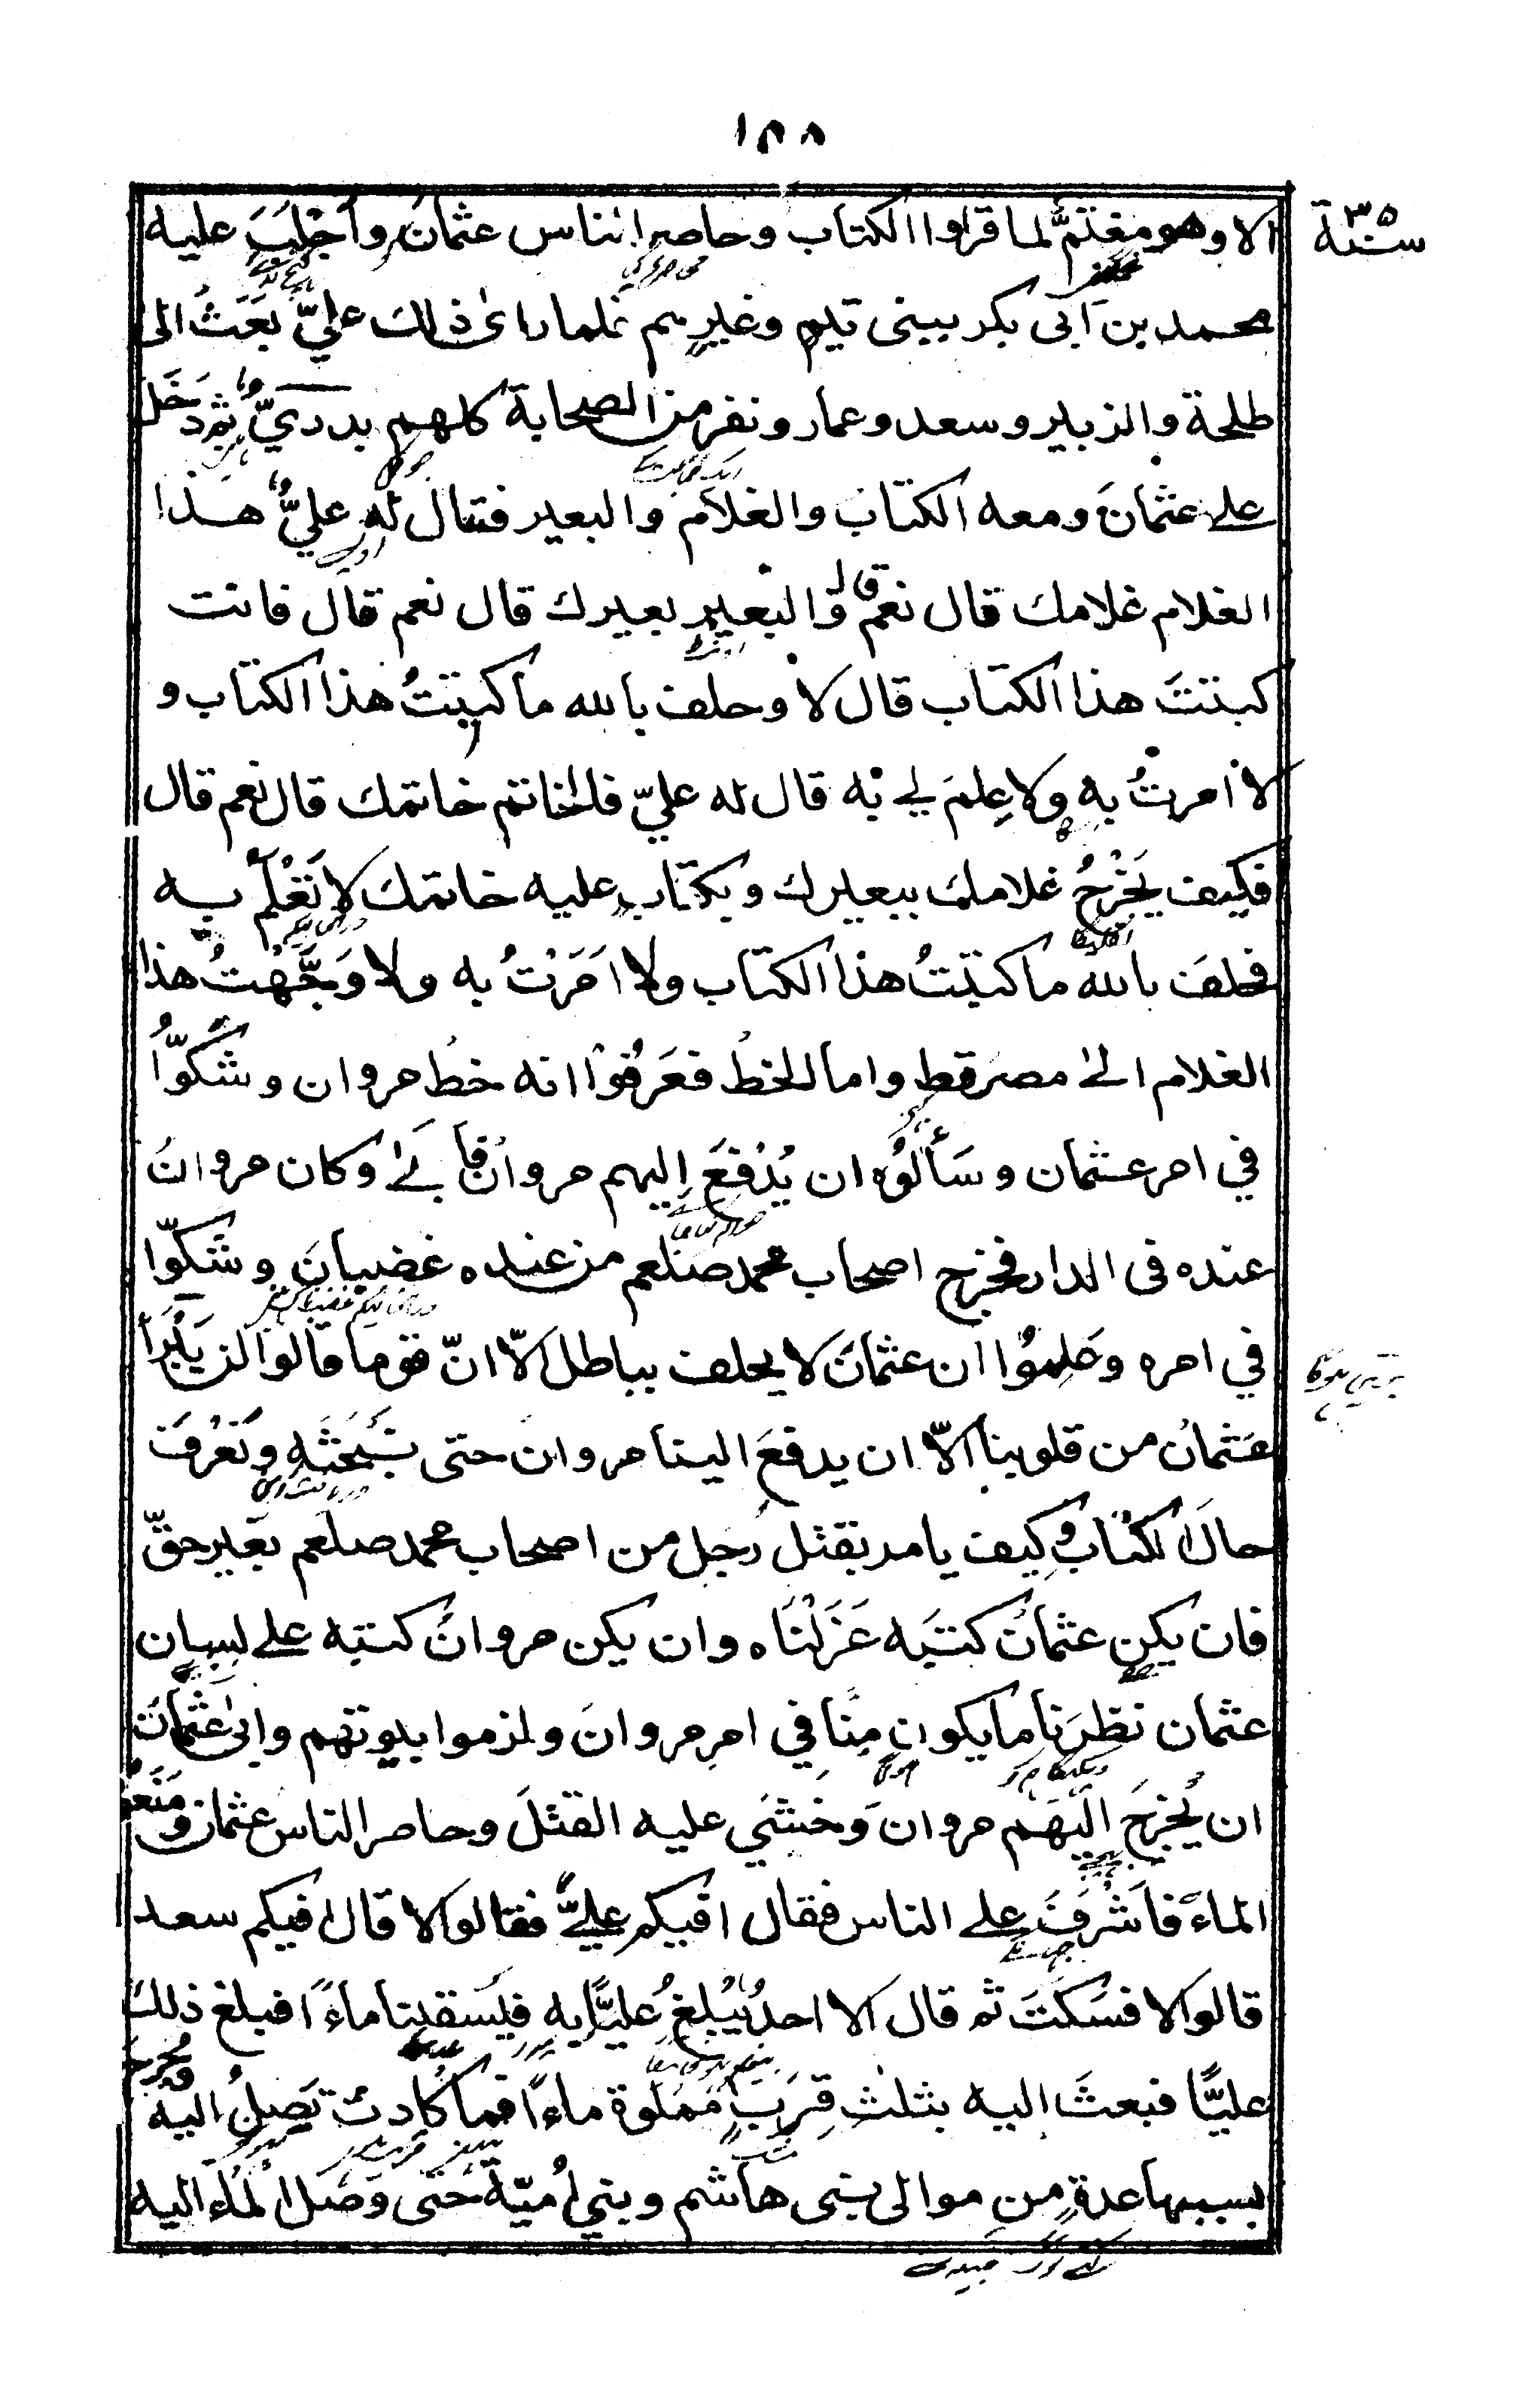 ١٥٨
سنة ٣٥
الا وهو مغتمّ لما قراوا الكتاب وحاصر الناس عثمانَ واَجْلَبَ عليه
محمد بن ابى بكر ببنى تيم وغيرهم فلما راى ذلك عليّ بعَثَ الى
طلحة والزبير وسعد وعمار ونفر من الصحابة كلهم بدريٌّ ثم دَخَل
على عثمانَ ومعه الكتاب والغلام والبعير فقال له عليٌّ هذا
الغلام غلامك قال نعم قال والبعير بعيرك قال نعم قال فانت
كبتتَ هذا الكتاب قال لا وحلف بالله ما كتبتُ هذا الكتاب و
لا امرتُ به ولا عِلمَ لي به قال له عليّ فالخاتم خاتمك قال نعم قال
فكيف يَخْرُجُ غلامك ببعيرك وبكتابٍ عليه خاتمك لا تَعْلَمُ به
فحلفَ بالله ما كتبتُ هذا الكتاب ولا اَمَرْتُ به ولا وَجَّهْتُ هذا
الغلام الى مصرَ قط واما الخطُ فعَرَفُوْا انه خطُ مروان وشَكُّوْا
في امر عثمان وسَألُوْه ان يُدْفَعَ اليهم مروان فأبَىٰ وكان مروانُ
عنده فى الدار فخرج اصحاب محمد صلعم من عنده غضبانَ وشَكُّوا
في امره وعَلِمُوْا ان عثمانَ لا يحلف بباطل الّا انّ قوما قالوا لن يَبْرَأ
عثمانُ من قلوبنا الّا ان يدفعَ الينا مروانَ حتى نَبْحَثَه ونَعْرِفَ
حالَ الكتابِ وكيف يامر بقتل رجل من اصحاب محمد صلعم بغير حقّ
فان يكن عثمانُ كتبَه عَزَلْنَاه وان يكن مروانُ كتبه على لسان
عثمان نظرنا ما يكون مِنّا في امرِ مروانَ ولزموا بيوتهم وابىٰ عثمانَ
ان يُخْرِجَ اليهم مروانَ وخَشِيَ عليه القتلَ وحاصر الناس عثمان ومَنَعُوه
الماءَ فاَشْرَفَ على الناس فقال افيكم عليٌّ فقالوا لا قال افيكم سعد
قالوا لا فسكَتَ ثم قال الا احدٌ يُبَلِّغُ عليًّا به فيَسقينا ماءً فبلغ ذلك
عليًّا فبعثَ اليه بثلٰثِ قِرَبٍ مَملوة ماءً فما كادتْ تَصِلُ اليه وجُرِحَ
بسببها عدةٌ مِن موالى بنى هاشم وبني اُميّة حَتى وصَلَ الماء اليه